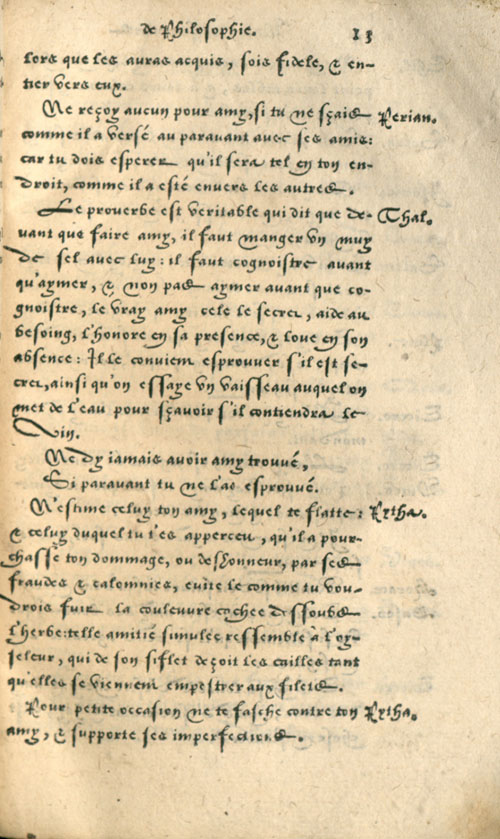 de Philosophie. 13
lors que les auras acquis, sois fidele, & en-
tier vers eux.
Ne reçoy aucun pour amy, si tu ne sçais Perian.
comme il a versé au paravant avec ses amis:
car tu dois esperer qu'il sera tel en ton en-
droit, comme il a esté envers les autres.
Le proverbe est veritable qui dit que de- Thal.
vant que faire amy, il faut manger vn muy
de sel avec luy: il faut cognoistre avant
qu'aymer, & non pas aymer avant que co-
gnoistre, le vray amy cele le secret, aide au
besoing, l'honore en sa presence, & loue en son
absence: Il le convient esprouver s'il est se-
cret, ainsi qu'on essaye vn vaisseau auquel on
met de l'eau pour sçavoir s'il contiendra le
vin.
Ne dy iamais avoir amy trouvé,
Si paravant tu ne l'as esprouvé.
N'estime celuy ton amy, lequel te flatte: Pytha.
& celuy duquel tu t'es apperceu, qu'il a pour-
chassé ton dommage, ou deshonneur, par ses
fraudes & calomnies, evite le comme tu vou-
drois fuir la couleuvre cachee dessoubs
l'herbe: telle amitié simulee ressemble à l'oy-
seleur, qui de son siflet deçoit les cailles tant
qu'elles se viennent empestrer aux filets.
Pour petite occasion ne te fasche contre ton Pytha.
amy, & supporte ses imperfections.